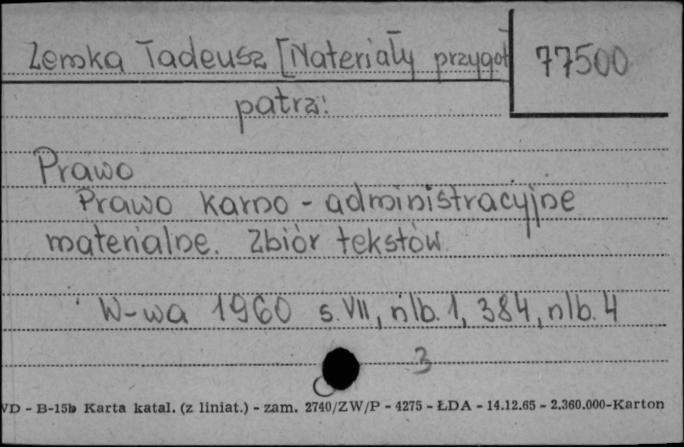 Zemska Tadeusz [Materiały przygot
77500
patrz:
Prawo
Prawo karno - administracyjne
materialne. Zbiór tekstów
W-wa 1960 s. VII, nlb. 1, 384, nlb. 4
3
VD - B-15b Karta katal. (z liniat.) - zam. 2740/ZW/P - 4275 - ŁDA - 14.12.65 - 2.360.000-Karton